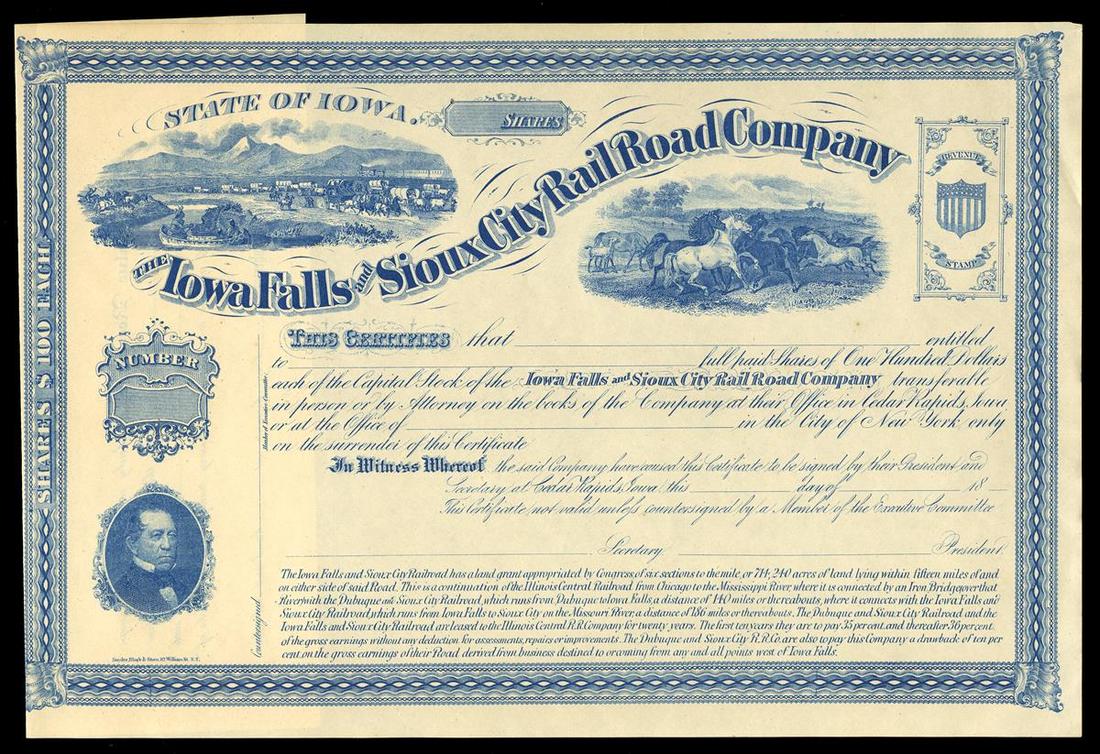 STATE OF IOWA.
SHARES
THE Iowa Falls and Sioux City Rail Road Company
REVENUE
STAMP
SHARES $100 EACH
NUMBER
THIS CERTIFIES that entitled
to full paid Shares of One Hundred Dollars
each of the Capital Stock of the Iowa Falls and Sioux City Rail Road Company transferable
in person or by Attorney on the books of the Company at their Office in Cedar Rapids, Iowa
or at the Office of in the City of New York only
on the surrender of this Certificate
In Witness Whereof the said Company have caused this Certificate to be signed by their President and
Secretary at Cedar Rapids, Iowa this day of 18
This Certificate not valid unless countersigned by a Member of the Executive Committee
Secretary. President.
Countersigned
Member of Executive Committee
The Iowa Falls and Sioux City Railroad has a land grant appropriated by Congress of six sections to the mile, or 714,240 acres of land lying within fifteen miles of and
on either side of said Road. This is a continuation of the Illinois Central Railroad from Chicago to the Mississippi River, where it is connected by an Iron Bridge over that
River with the Dubuque and Sioux City Railroad, which runs from Dubuque to Iowa Falls, a distance of 140 miles or thereabouts, where it connects with the Iowa Falls and
Sioux City Railroad, which runs from Iowa Falls to Sioux City on the Missouri River, a distance of 186 miles or thereabouts. The Dubuque and Sioux City Railroad and the
Iowa Falls and Sioux City Railroad are leased to the Illinois Central R.R. Company for twenty years. The first ten years they are to pay 35 per cent. and thereafter 36 per cent.
of the gross earnings without any deduction for assessments, repairs or improvements. The Dubuque and Sioux City R.R. Co. are also to pay this Company a drawback of ten per
cent. on the gross earnings of their Road derived from business destined to or coming from any and all points west of Iowa Falls.